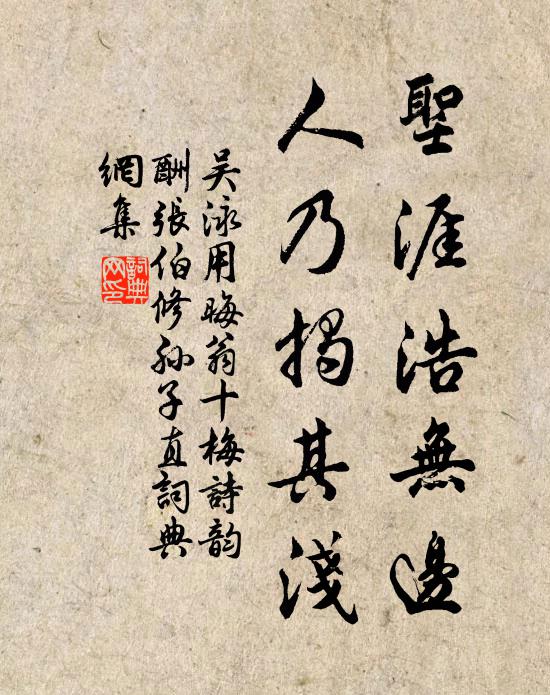 聖涯浩無邊
人乃揭其淺
吴泳用晦翁十梅詩韵
酬張伯修孙子直詞典
網集
詞典網印